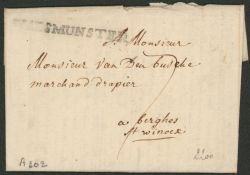 MUNSTER
A Monsieur
Monsieur van Den busche
marchand drapier
a berghes
St winock
A 302